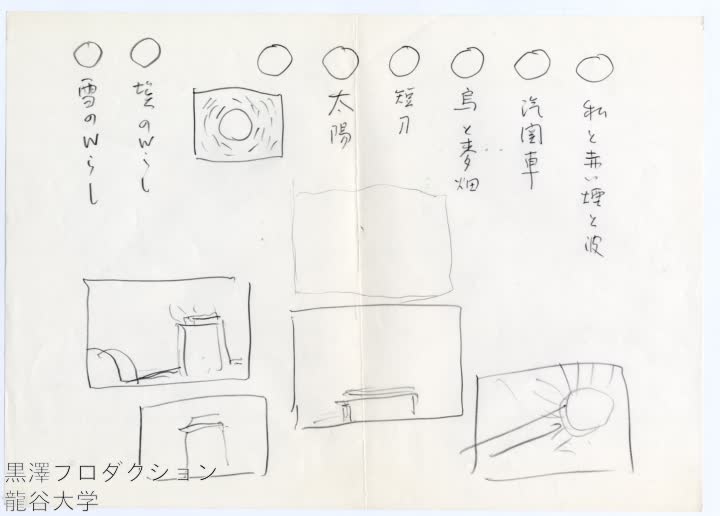 私と赤い煙と波
汽関車
烏と麦畑
短刀
太陽
埃のWらし
雪のWらし
黒澤プロダクション
龍谷大学